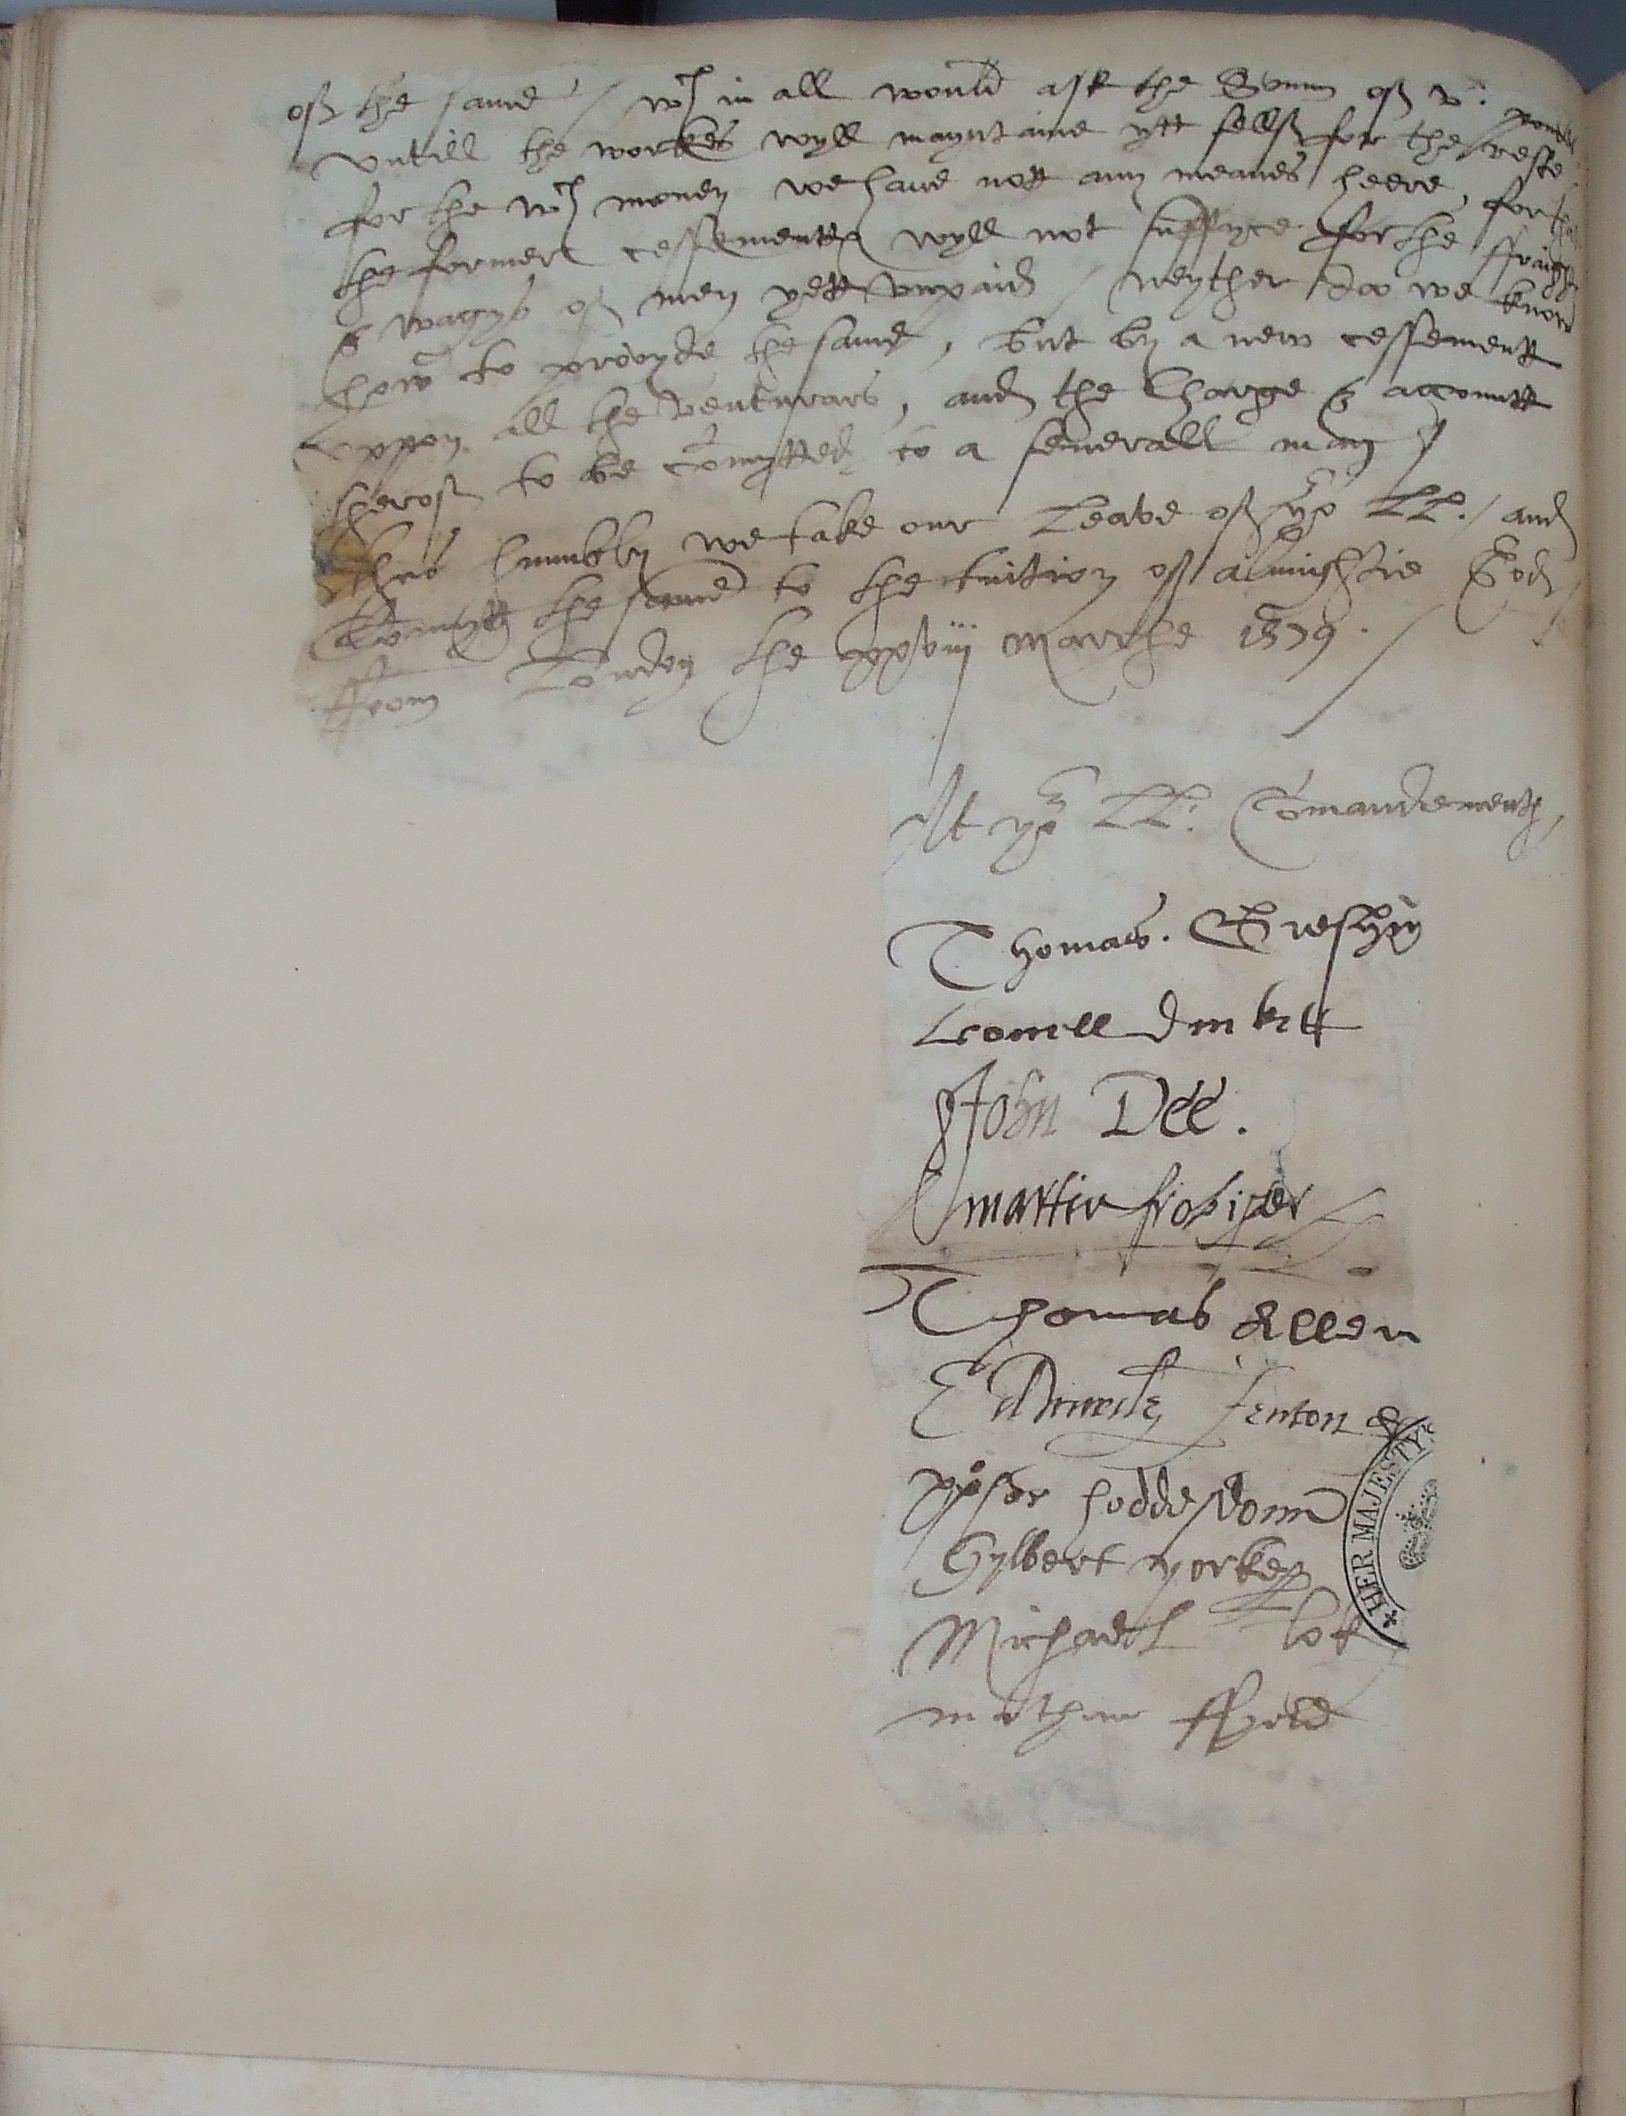 off the same / wch in all would ask the Somm off v c pound
untill the workes wyll mayntaine ytt sellff for the reste
for the wch money we have nott any meanes heere, for tha
the former cessementts wyll not suffyce for the ffraight
& wagys off men yett unpaid / neyther doo we know
how to provyde the same, but by a new cessementt
uppon all the venturars, and the Charge & accountt
theroff to be comytted to a severall man /
thus humbly we take our Leave off yor LL. / and
Comytt the same to the tuition off almightie God /
ffrom London the xxviii Marche 1579. /
At yor LL. Comandementts,
Thomas. Gresham
Leonell Duckett
John Dee.
martin frobiser
Thomas Allen
Edmund fenton
xpofer hoddesdonn
Gylbert yorke
Michael lok
mathew ffyeld
HER MAJESTY'S